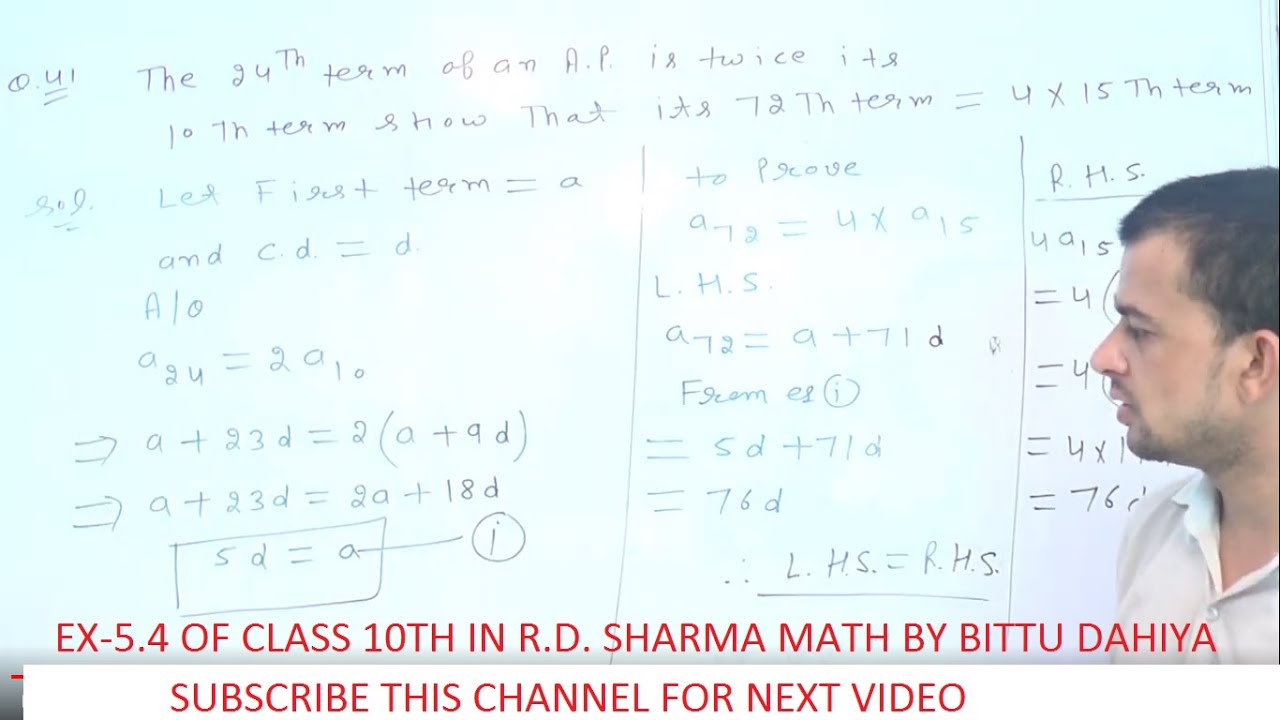 Q.41 The 24Th term of an A.P. is twice its
10Th term show That its 72Th term = 4 X 15Th term
Sol. Let First term = a
and c.d. = d.
A/Q
a24 = 2 a10
⇒ a + 23d = 2(a + 9d)
⇒ a + 23d = 2a + 18d
5d = a — (i)
to Prove
a72 = 4 X a15
L.H.S.
a72 = a + 71d
From eq (i)
= 5d + 71d
= 76d
∴ L.H.S. = R.H.S.
R.H.S.
4a15
= 4(
= 4(
= 4X1
= 76d
EX-5.4 OF CLASS 10TH IN R.D. SHARMA MATH BY BITTU DAHIYA
SUBSCRIBE THIS CHANNEL FOR NEXT VIDEO